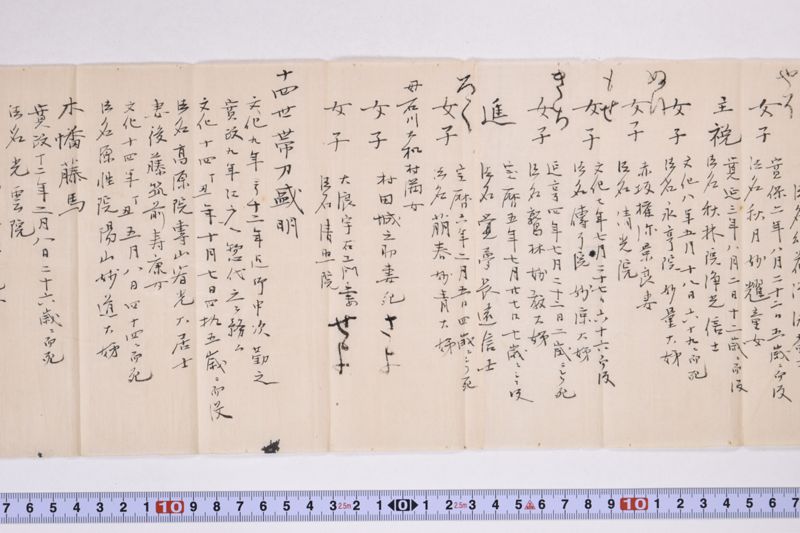 女子
寛保二年八月二十二日五歳ニ而没
法名秋月妙耀童女
主税
寛延三年八月二日十二歳ニ而没
法名秋林院浄芝信士
女子
文化八年五月十八日六十九ニ而死
法名永亨院妙量大姉
ぬい
女子
赤坂権弥景良妻
法名清光院
もせ
女子
文化七年七月二十七日六十六ニ而没
法名傳了院妙涼大姉
きち
女子
延享四年七月二十二日二歳ニ而死
進
宝暦五年七月廿七日七歳ニ而没
法名覚夢長遠信士
女子
宝暦六年二月五日四歳ニ而死
法名萠春妙青大姉
母石川大和村満女
女子
村田城之助妻
女子
法名清照院
十四世帯刀盛明
文化九年ヨリ十二年近所申次勤之
文化十四丁丑年十月七日四拾五歳ニ而没
法名高原院專山省光大居士
妻後藤筑前寿康女
文化十四年丁丑五月八日四十四ニ而死
法名原性院陽山妙道大姉
木幡藤馬
寛政十二年二月八日二十六歳ニ而死
法名光雲院
7 6 5 4 3 2 1 10 9 8 7 6 5 4 3 2.5m 2 1 0 1 2 2.5m 3 4 5 6 7 8 9 10 1 2 3 4 5 6 7